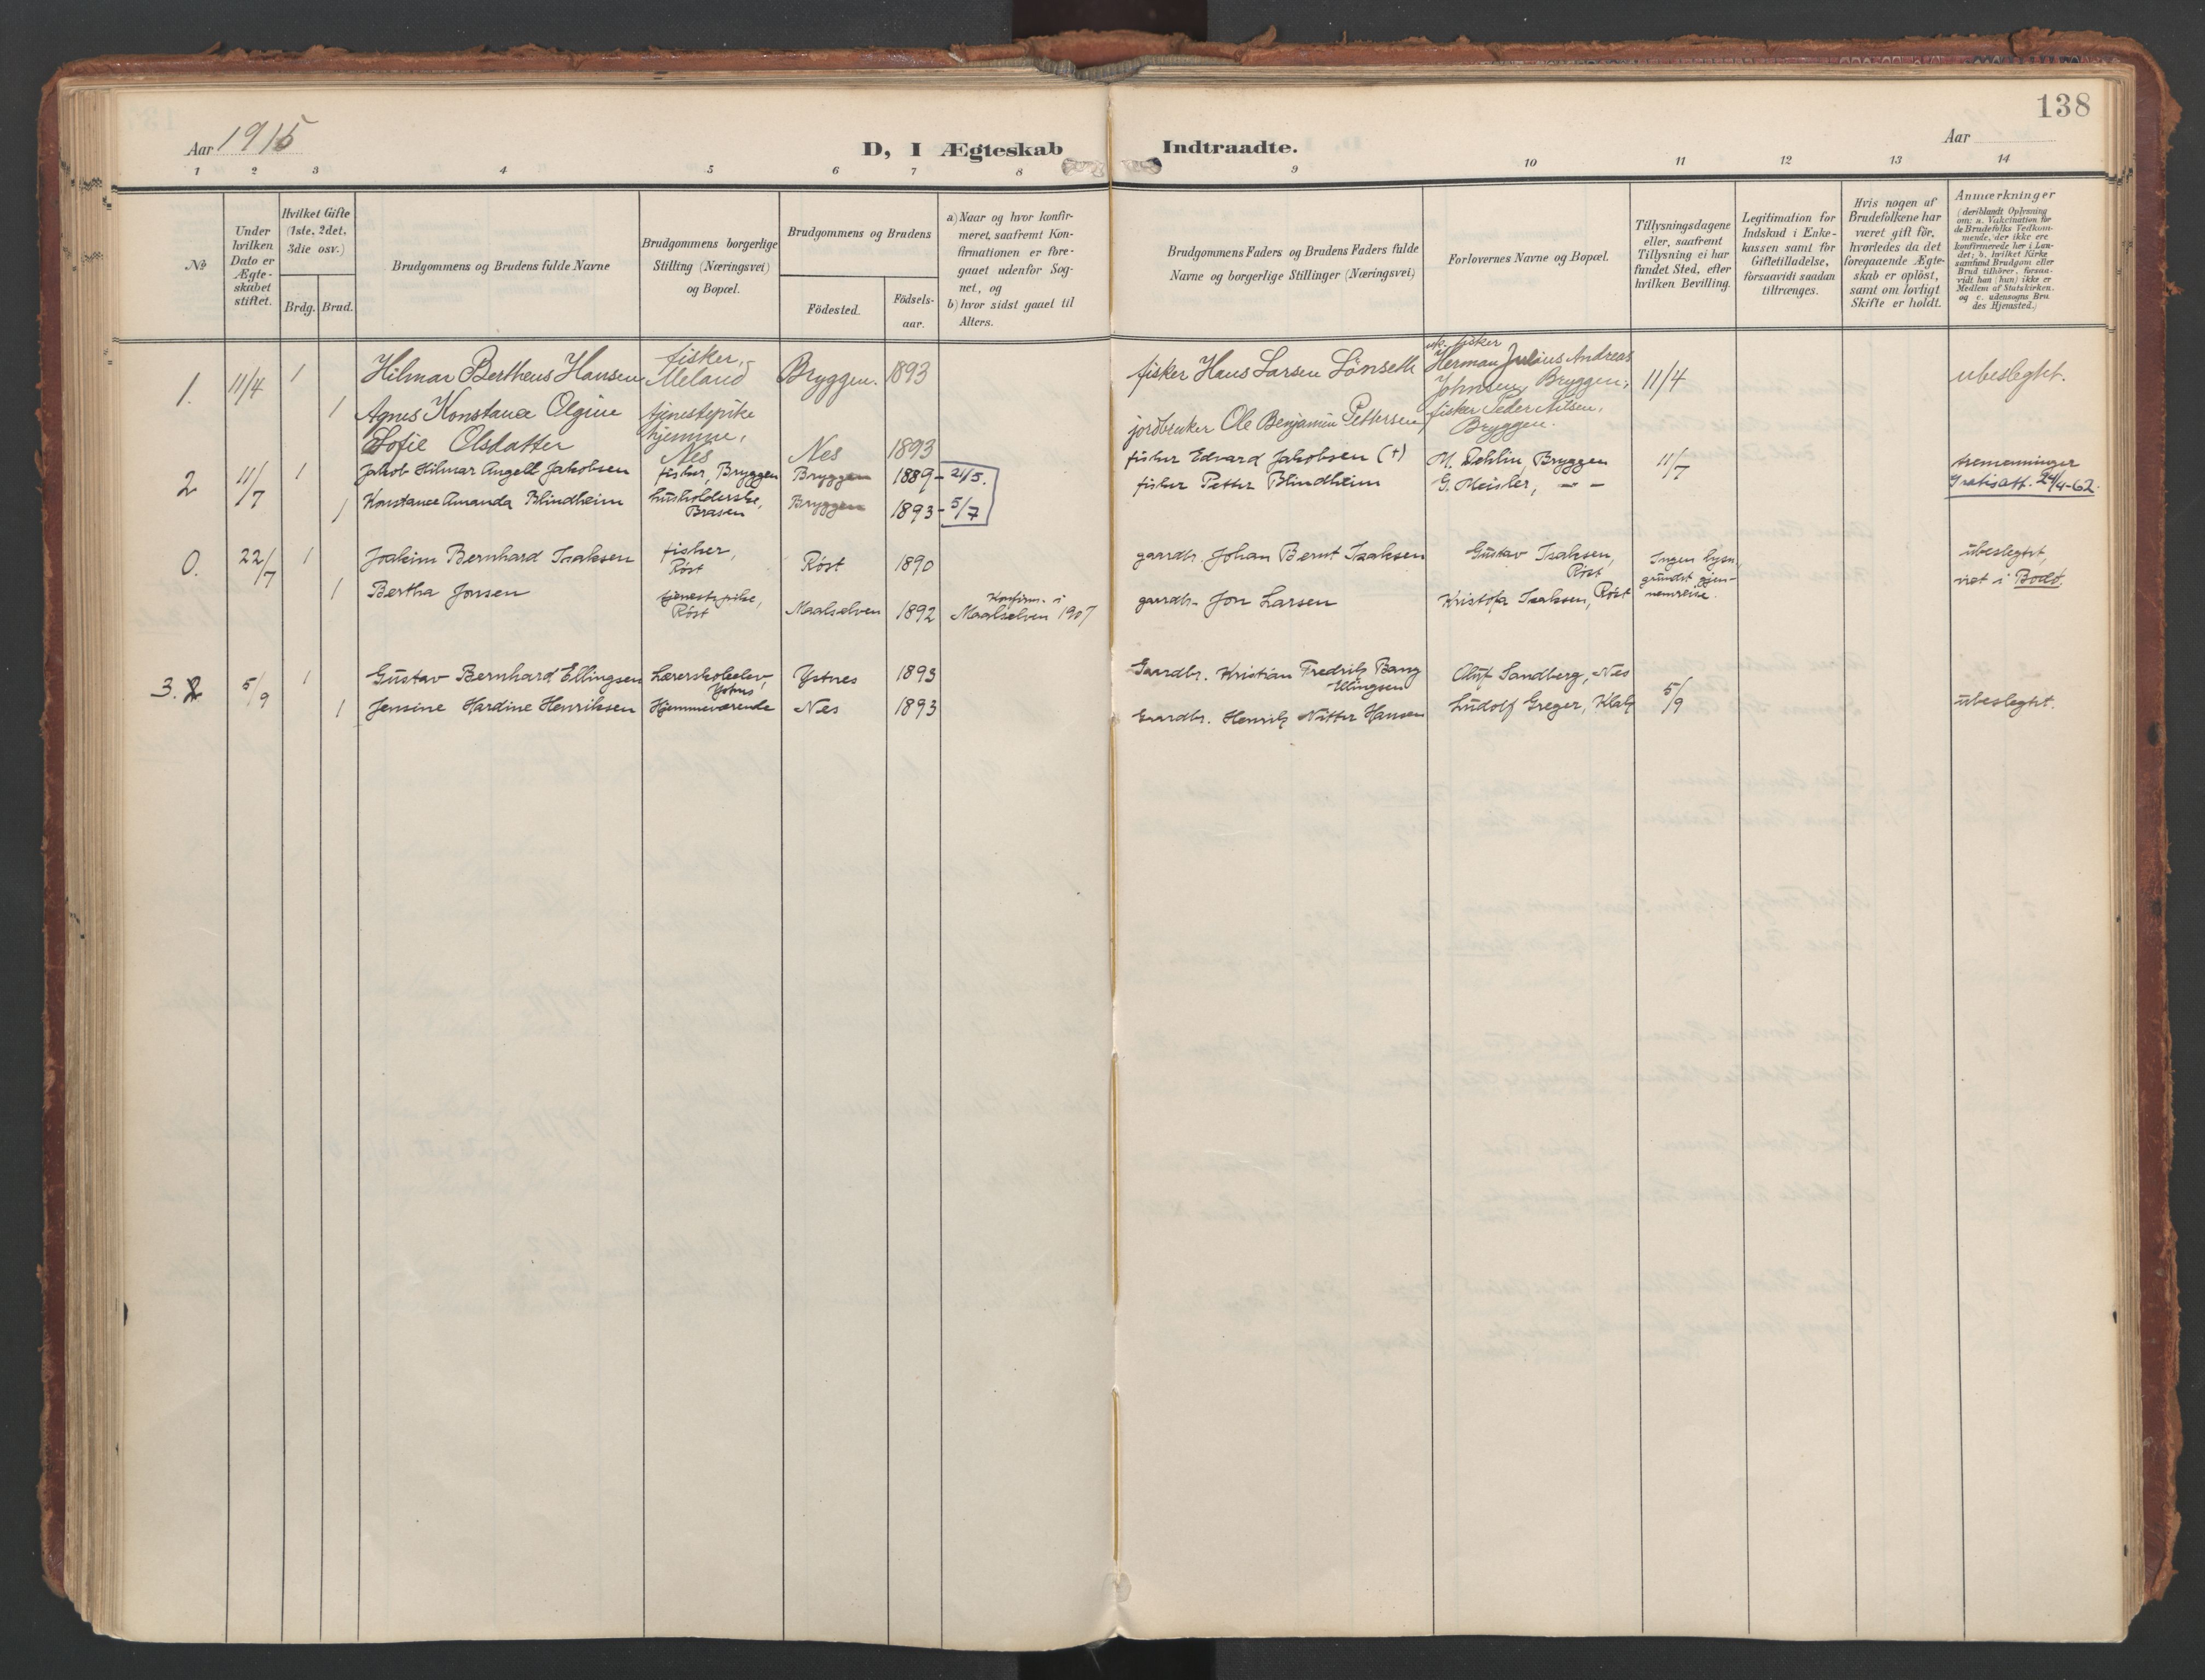 138
Aar 1915
D, I Ægteskab Indtraadte.
Aar
1 2 3 4 5 6 7 8 9 10 11 12 13 14
No
Under hvilken Dato er Ægteskabet stiftet.
Hvilket Gifte (1ste, 2det, 3die osv.)
Brdg. Brud.
Brudgommens og Brudens fulde Navne
Brudgommens borgerlige Stilling (Næringsvei) og Bopæl.
Brudgommens og Brudens
Födested.
Födsels-aar.
a) Naar og hvor konfir-
meret, saafremt Kon-
firmationen er fore-
gaaet udenfor Sog-
net, og
b) hvor sidst gaaet til
Alters.
Brudgommens Faders og Brudens Faders fulde
Navne og borgerlige Stillinger (Næringsvei)
Forlovernes Navne og Bopæl.
Tillysningsdagene
eller, saafremt
Tillysning ei har
fundet Sted, efter
hvilken Bevilling.
Legitimation for
Indskud i Enke-
kassen samt for
Giftetilladelse,
forsaavidt saadan
tiltrænges.
Hvis nogen af
Brudefolkene har
været gift för,
hvorledes da det
foregaaende Ægte-
skab er oplöst,
samt om lovligt
Skifte er holdt.
Anmærkninger
(deriblandt Oplysning
om: a. Vakcination for
de Brudefolks Vedkom-
mende, der ikke ere
konfirmerede her i Lan-
det; b. hvilket Kirke
samfund Brudgom eller
Brud tilhörer, forsaa-
vidt han (hun) ikke er
Medlem af Statskirken.
og c. udensogns Bru
des Hjemsted.)
1. 11/4 1 Hilmar Bertheus Hansen fisker, Meland Bryggen. 1893 fisker Hans Larsen Lönseth fisker Herman Julius Andreas Johnsen, Bryggen, 11/4 ubeslegtet.
1 Agnes Konstance Olgine Sofie Olsdatter tjenestepike hjemme, Nes Nes 1893 jordbruker Ole Benjamin Pettersen fisker Peder Nilsen, Bryggen.
2 11/7 1 Jakob Hilmar Angell Jakobsen fisker, Bryggen Bryggen 1889 - 21/5. fisker Edvard Jakobsen (+) M. Dehlin, Bryggen 11/7 tremenninger
1 Konstance Amanda Blindheim husholderske, Brasen Bryggen 1893 - 5/7 fisker Petter Blindheim G. Meisler, - - Gratisatt. 24/4-62.
0. 22/7 1 Joakim Bernhard Isaksen fisker, Røst Røst 1890 gaardbr. Johan Bernt Isaksen Gustav Isaksen, Røst Ingen lysn. grundet gjennemreise. ubeslegtet,
1 Bertha Jonsen tjenestepike, Røst Maalselven 1892 Konfirm. i Maalselven 1907 gaardbr. Jon Larsen Kristofa Isaksen, Røst viet i Bodø.
3. 2 5/9 1 Gustav Bernhard Ellingsen Lærerskoleelev, Ystnes Ystnes 1893 Gaardbr. Kristian Fredrik Bang Ellingsen Oluf Sandberg, Nes 5/9
1 Jensine Hardine Henriksen Hjemmeværende Nes 1893 Gaardbr. Henrik Nitter Hansen Ludolf Greger, Klak ubeslegtet.